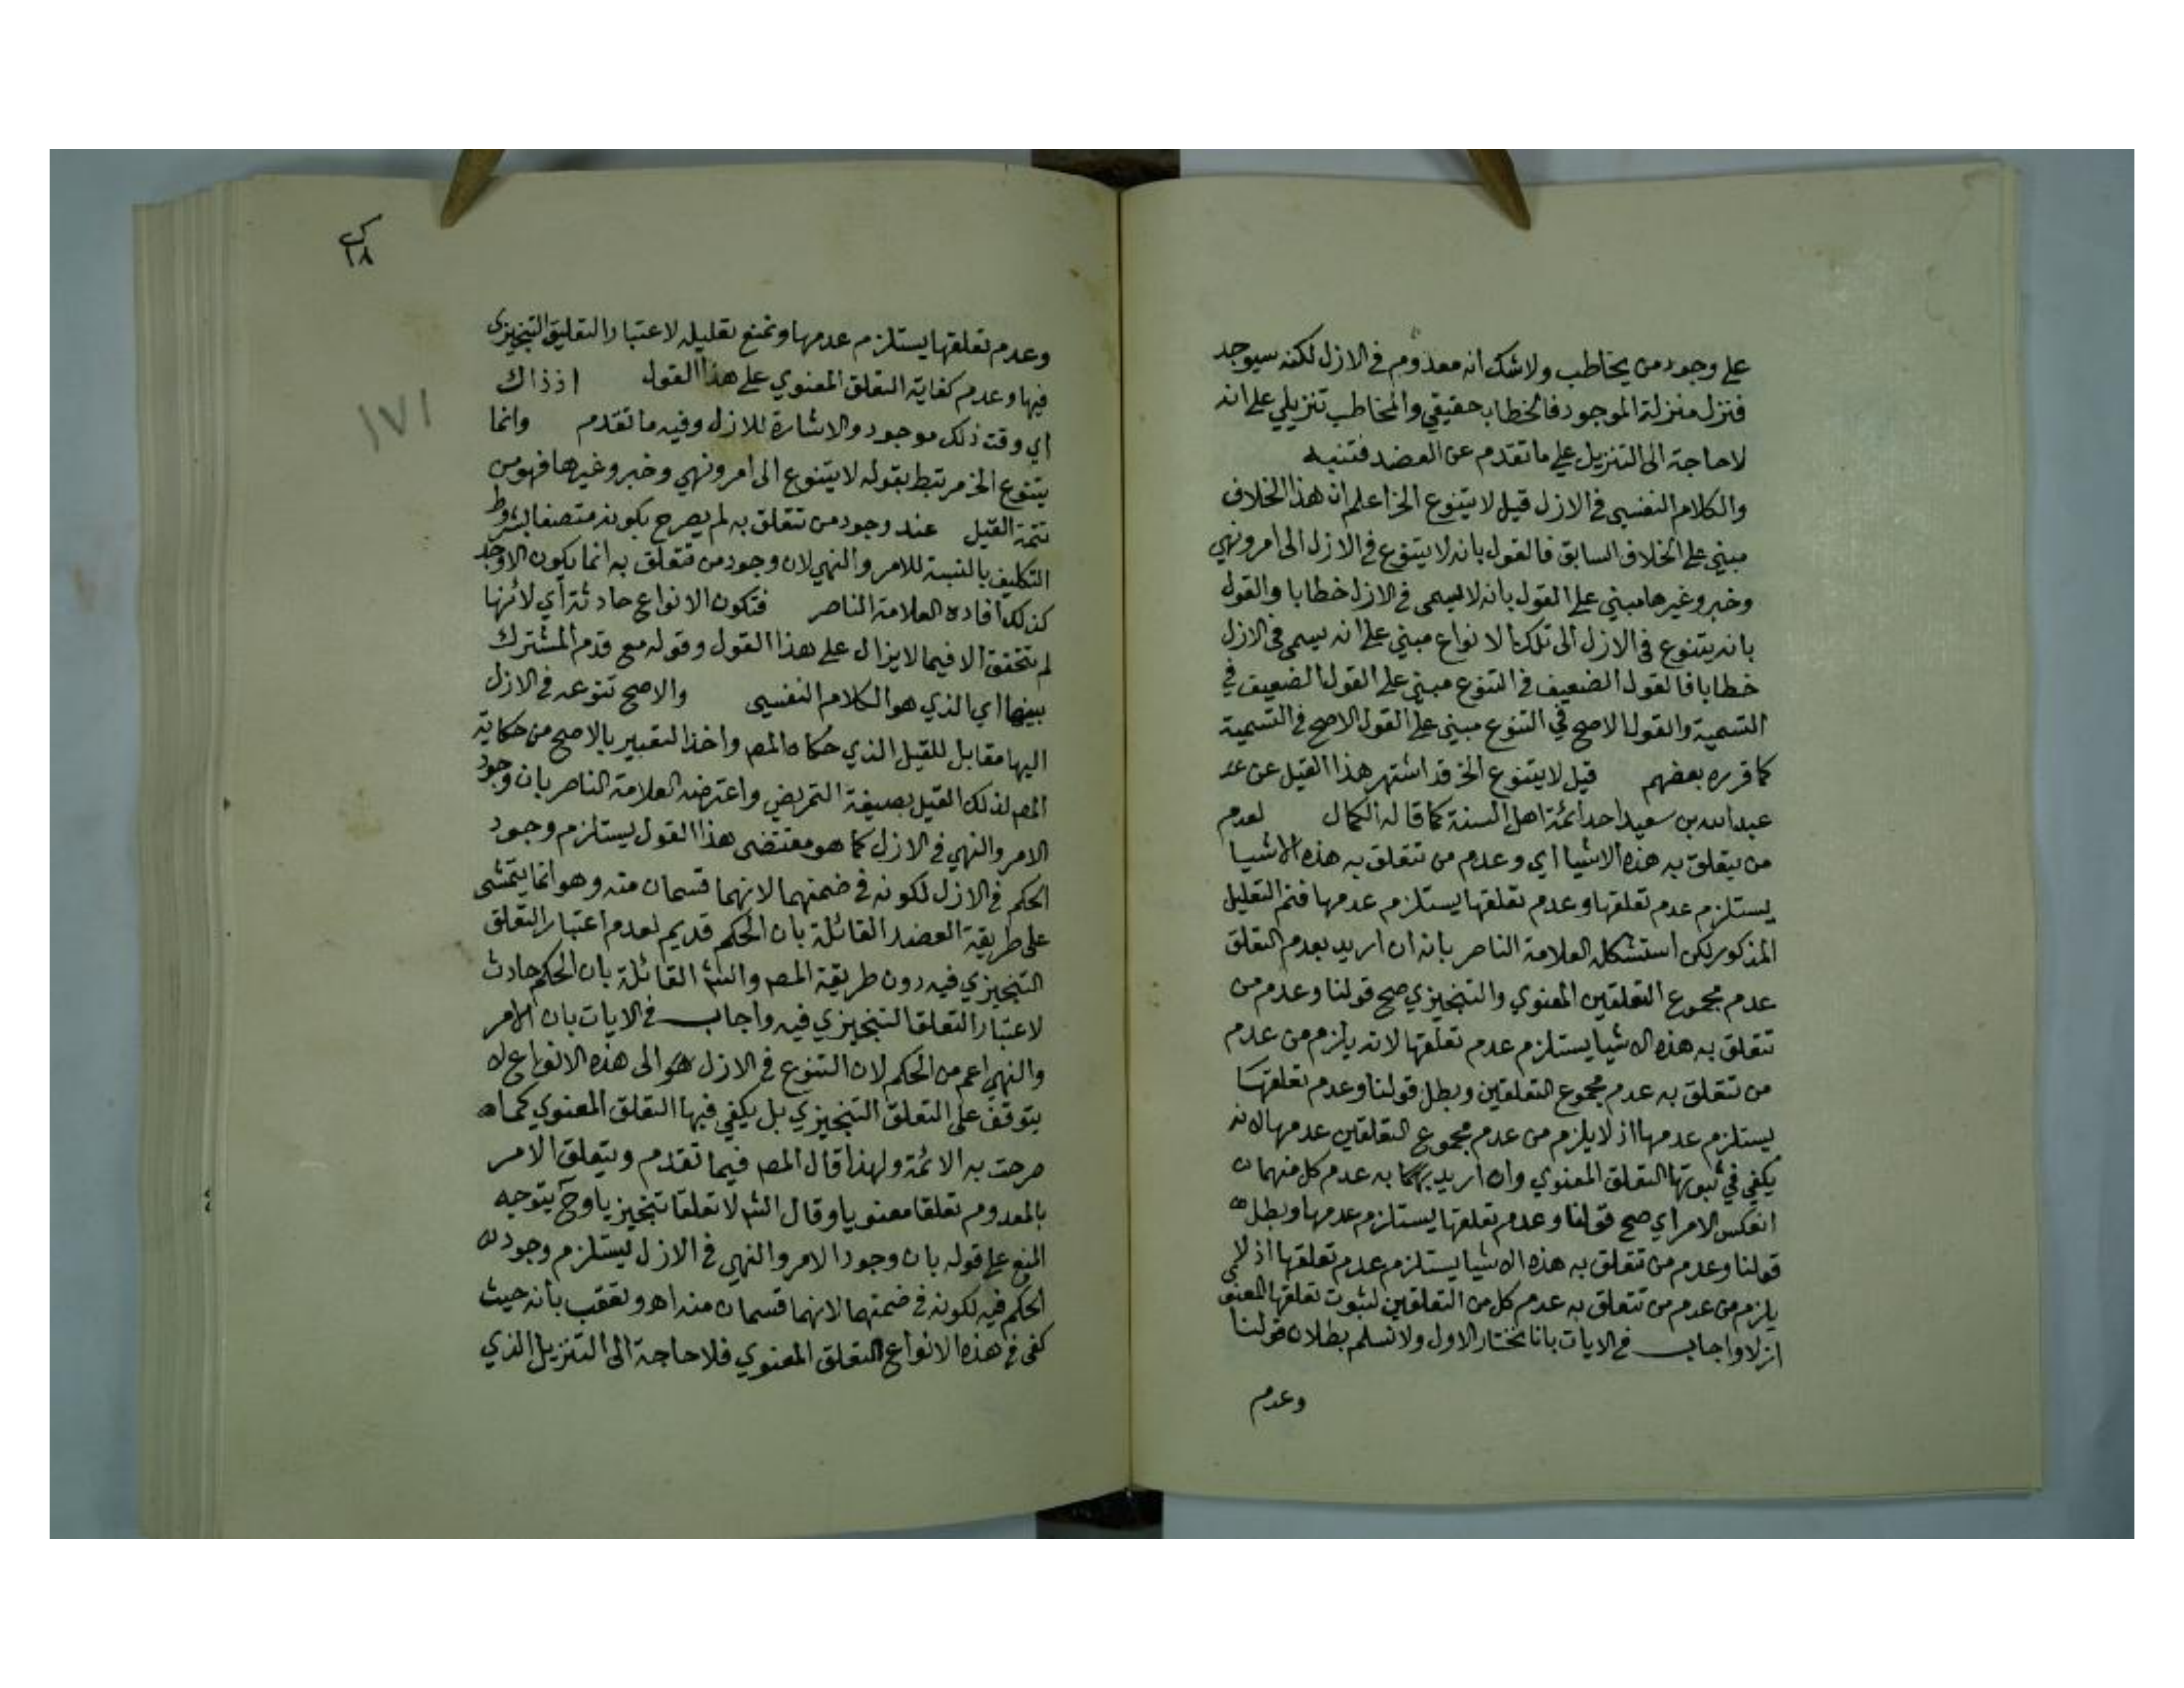 على وجود من يخاطب ولا شك انه معدوم في الازل لكنه سيوجد
فنزل منزلة الموجود فالخطاب حقيقي والمخاطب تنزيلي على انه
لا حاجة الى التنزيل على ما تقدم عن العضد فتنبه
والكلام النفسي في الازل قيل لا يتنوع الخ اعلم ان هذا الخلاف
مبني على الخلاف السابق فالقول بانه لا يتنوع في الازل الى امر ونهي
وخبر وغيرها مبني على القول بانه لا يسمى في الازل خطابا والقول
بانه يتنوع في الازل الى تلك الانواع مبني على انه يسمى في الازل
خطابا فالقول الضعيف في التنوع مبني على القول الضعيف في
التسمية والقول الاصح في التنوع مبني على القول الاصح في التسمية
كما قرره بعضهم قيل لا يتنوع الخ قد اشتهر هذا القيل عن
عبد الله بن سعيد احد ائمة اهل السنة كما قاله الكمال لعدم
من يتعلق به هذه الاشيا اي وعدم من تتعلق به هذه الاشيا
يستلزم عدم تعلقها وعدم تعلقها يستلزم عدمها فتم التعليل
المذكور لكن استشكله العلامة الناصر بانه ان اريد بعدم التعلق
عدم مجموع التعلقين المعنوي والتنجيزي صح قولنا وعدم من
تتعلق به هذه الاشيا يستلزم عدم تعلقها لانه يلزم من عدم
من تتعلق به عدم مجموع التعلقين وبطل قولنا وعدم تعلقها
يستلزم عدمها اذ لا يلزم من عدم مجموع التعلقين عدمها لانه
يكفي في ثبوتها التعلق المعنوي وان اريد به عدم كل منهما
انعكس الامر اي صح قولنا وعدم تعلقها يستلزم عدمها وبطل
قولنا وعدم من تتعلق به هذه الاشيا يستلزم عدم تعلقها اذ لا
يلزم من عدم من تتعلق به عدم كل من التعلقين لثبوت تعلقها المعنوي
ازلا واجاب في الايات بانا نختار الاول ولا نسلم بطلان قولنا
وعدم
١٧١
وعدم تعلقها يستلزم عدمها ونمنع تعليله لاعتبار التعليق التنجيزي
فيها وعدم كفاية التعلق المعنوي على هذا القول اذ ذاك
اي وقت ذلك موجود والاشارة للازل وفيه ما تقدم وانما
يتنوع الخ مرتبط بقوله لا يتنوع الى امر ونهي وخبر وغيرها فهو من
تتمة القيل عند وجود من تتعلق به لم يصرح بكونه متصفا بشروط
التكليف بالنسبة للامر والنهي لان وجود من تتعلق به انما يكون الاوجد
كذلك افاده العلامة الناصر فتكون الانواع حادثة اي لانها
لم تتحقق الا فيما لا يزال على هذا القول وقوله مع قدم المشترك
بينها اي الذي هو الكلام النفسي والاصح تنوعه في الازل
اليها مقابل للقيل الذي حكاه المص واخذ التعبير بالاصح من حكاية
المص لذلك القيل بصيغة التمريض واعترضه العلامة الناصر بان وجود
الامر والنهي في الازل كما هو مقتضى هذا القول يستلزم وجود
الحكم في الازل لكونه في ضمنهما لانهما قسمان منه وهو انما يتمشى
على طريقة العضد القائلة بان الحكم قديم لعدم اعتبار التعلق
التنجيزي فيه دون طريقة المص والش القائلة بان الحكم حادث
لاعتبار التعلق التنجيزي فيه واجاب في الايات بان الامر
والنهي اعم من الحكم لان التنوع في الازل هو الى هذه الانواع لا
يتوقف على التعلق التنجيزي بل يكفي فيها التعلق المعنوي كما
صرحت به الائمة ولهذا قال المص فيما تقدم ويتعلق الامر
بالمعدوم تعلقا معنويا وقال الش لا تعلقا تنجيزيا وح يتوجه
المنع على قوله بان وجود الامر والنهي في الازل يستلزم وجود
الحكم فيه لكونه في ضمنهما لانهما قسمان منه اهـ وتعقب بانه حيث
كفى في هذه الانواع التعلق المعنوي فلا حاجة الى التنزيل الذي